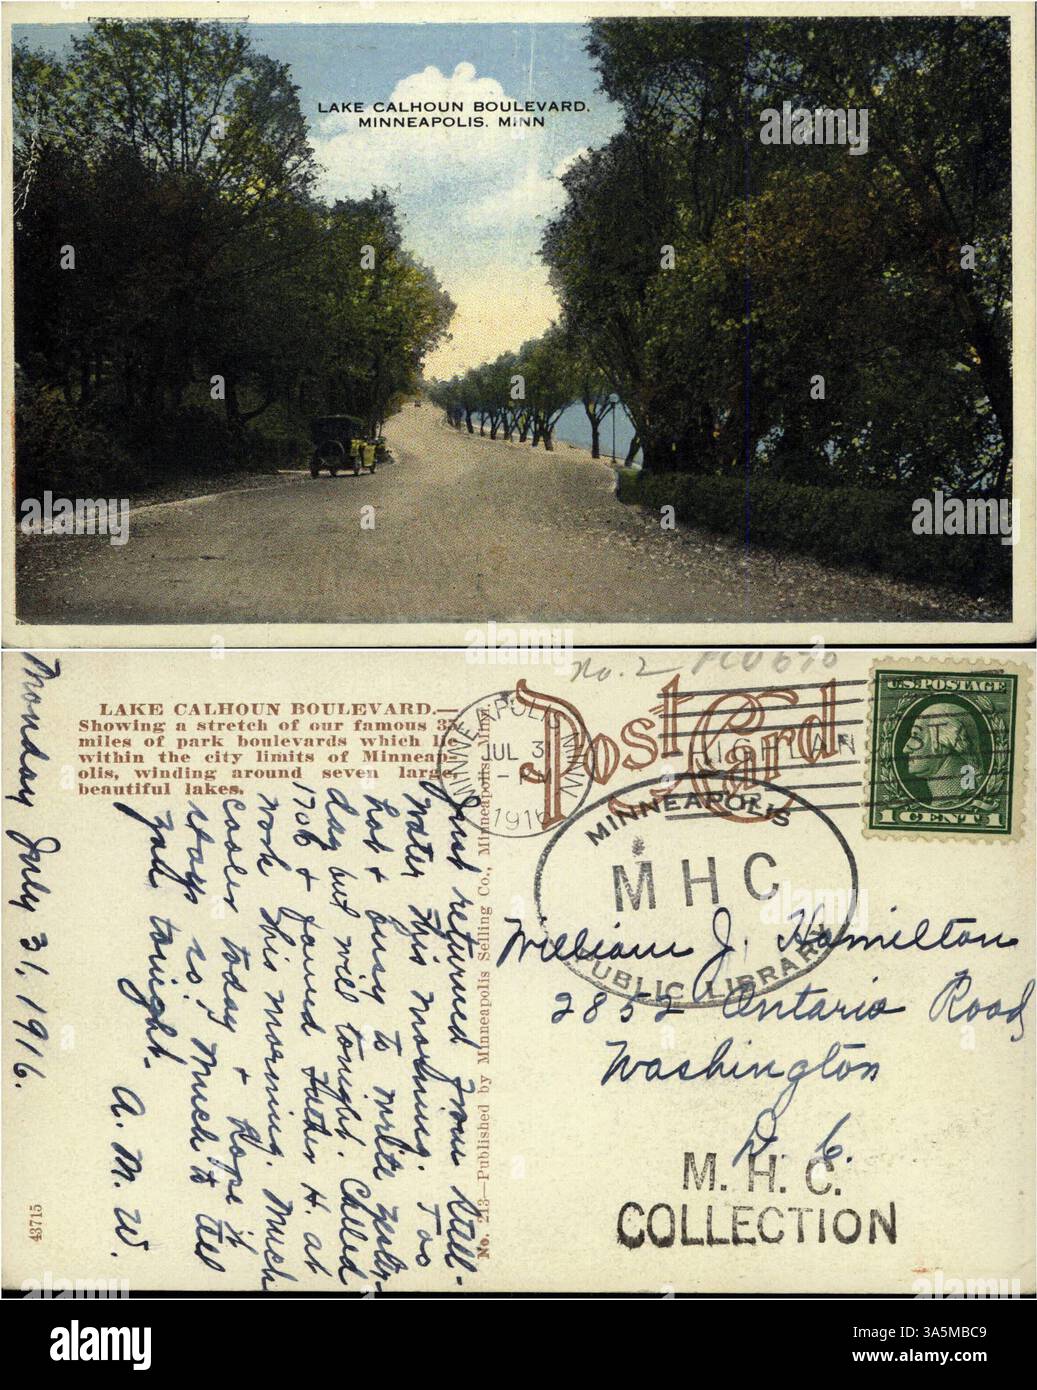 LAKE CALHOUN BOULEVARD.
MINNEAPOLIS. MINN
No. 2
LAKE CALHOUN BOULEVARD.—
Showing a stretch of our famous 35
miles of park boulevards which lie
within the city limits of Minneap-
olis, winding around seven large,
beautiful lakes.
Monday July 31, 1916.
Just returned from Still-
water this morning. Too
hot & busy to write yester-
day but will tonight. Called
1706 & found Father H. at
work this morning. Much
cooler today & hope it
stays so. Much to tell
you tonight.
A. M. W.
43715
No. 213—Published by Minneapolis Selling Co., Minneapolis, Minn.
Post Card
MINNEAPOLIS MINN
JUL 31
1916
U.S. POSTAGE
1 CENT 1
MINNEAPOLIS
M H C
PUBLIC LIBRARY
William J. Hamilton
2852 Ontario Road
Washington
D. C.
M. H. C.
COLLECTION
alamy
Image ID: 3A5MBC9
www.alamy.com